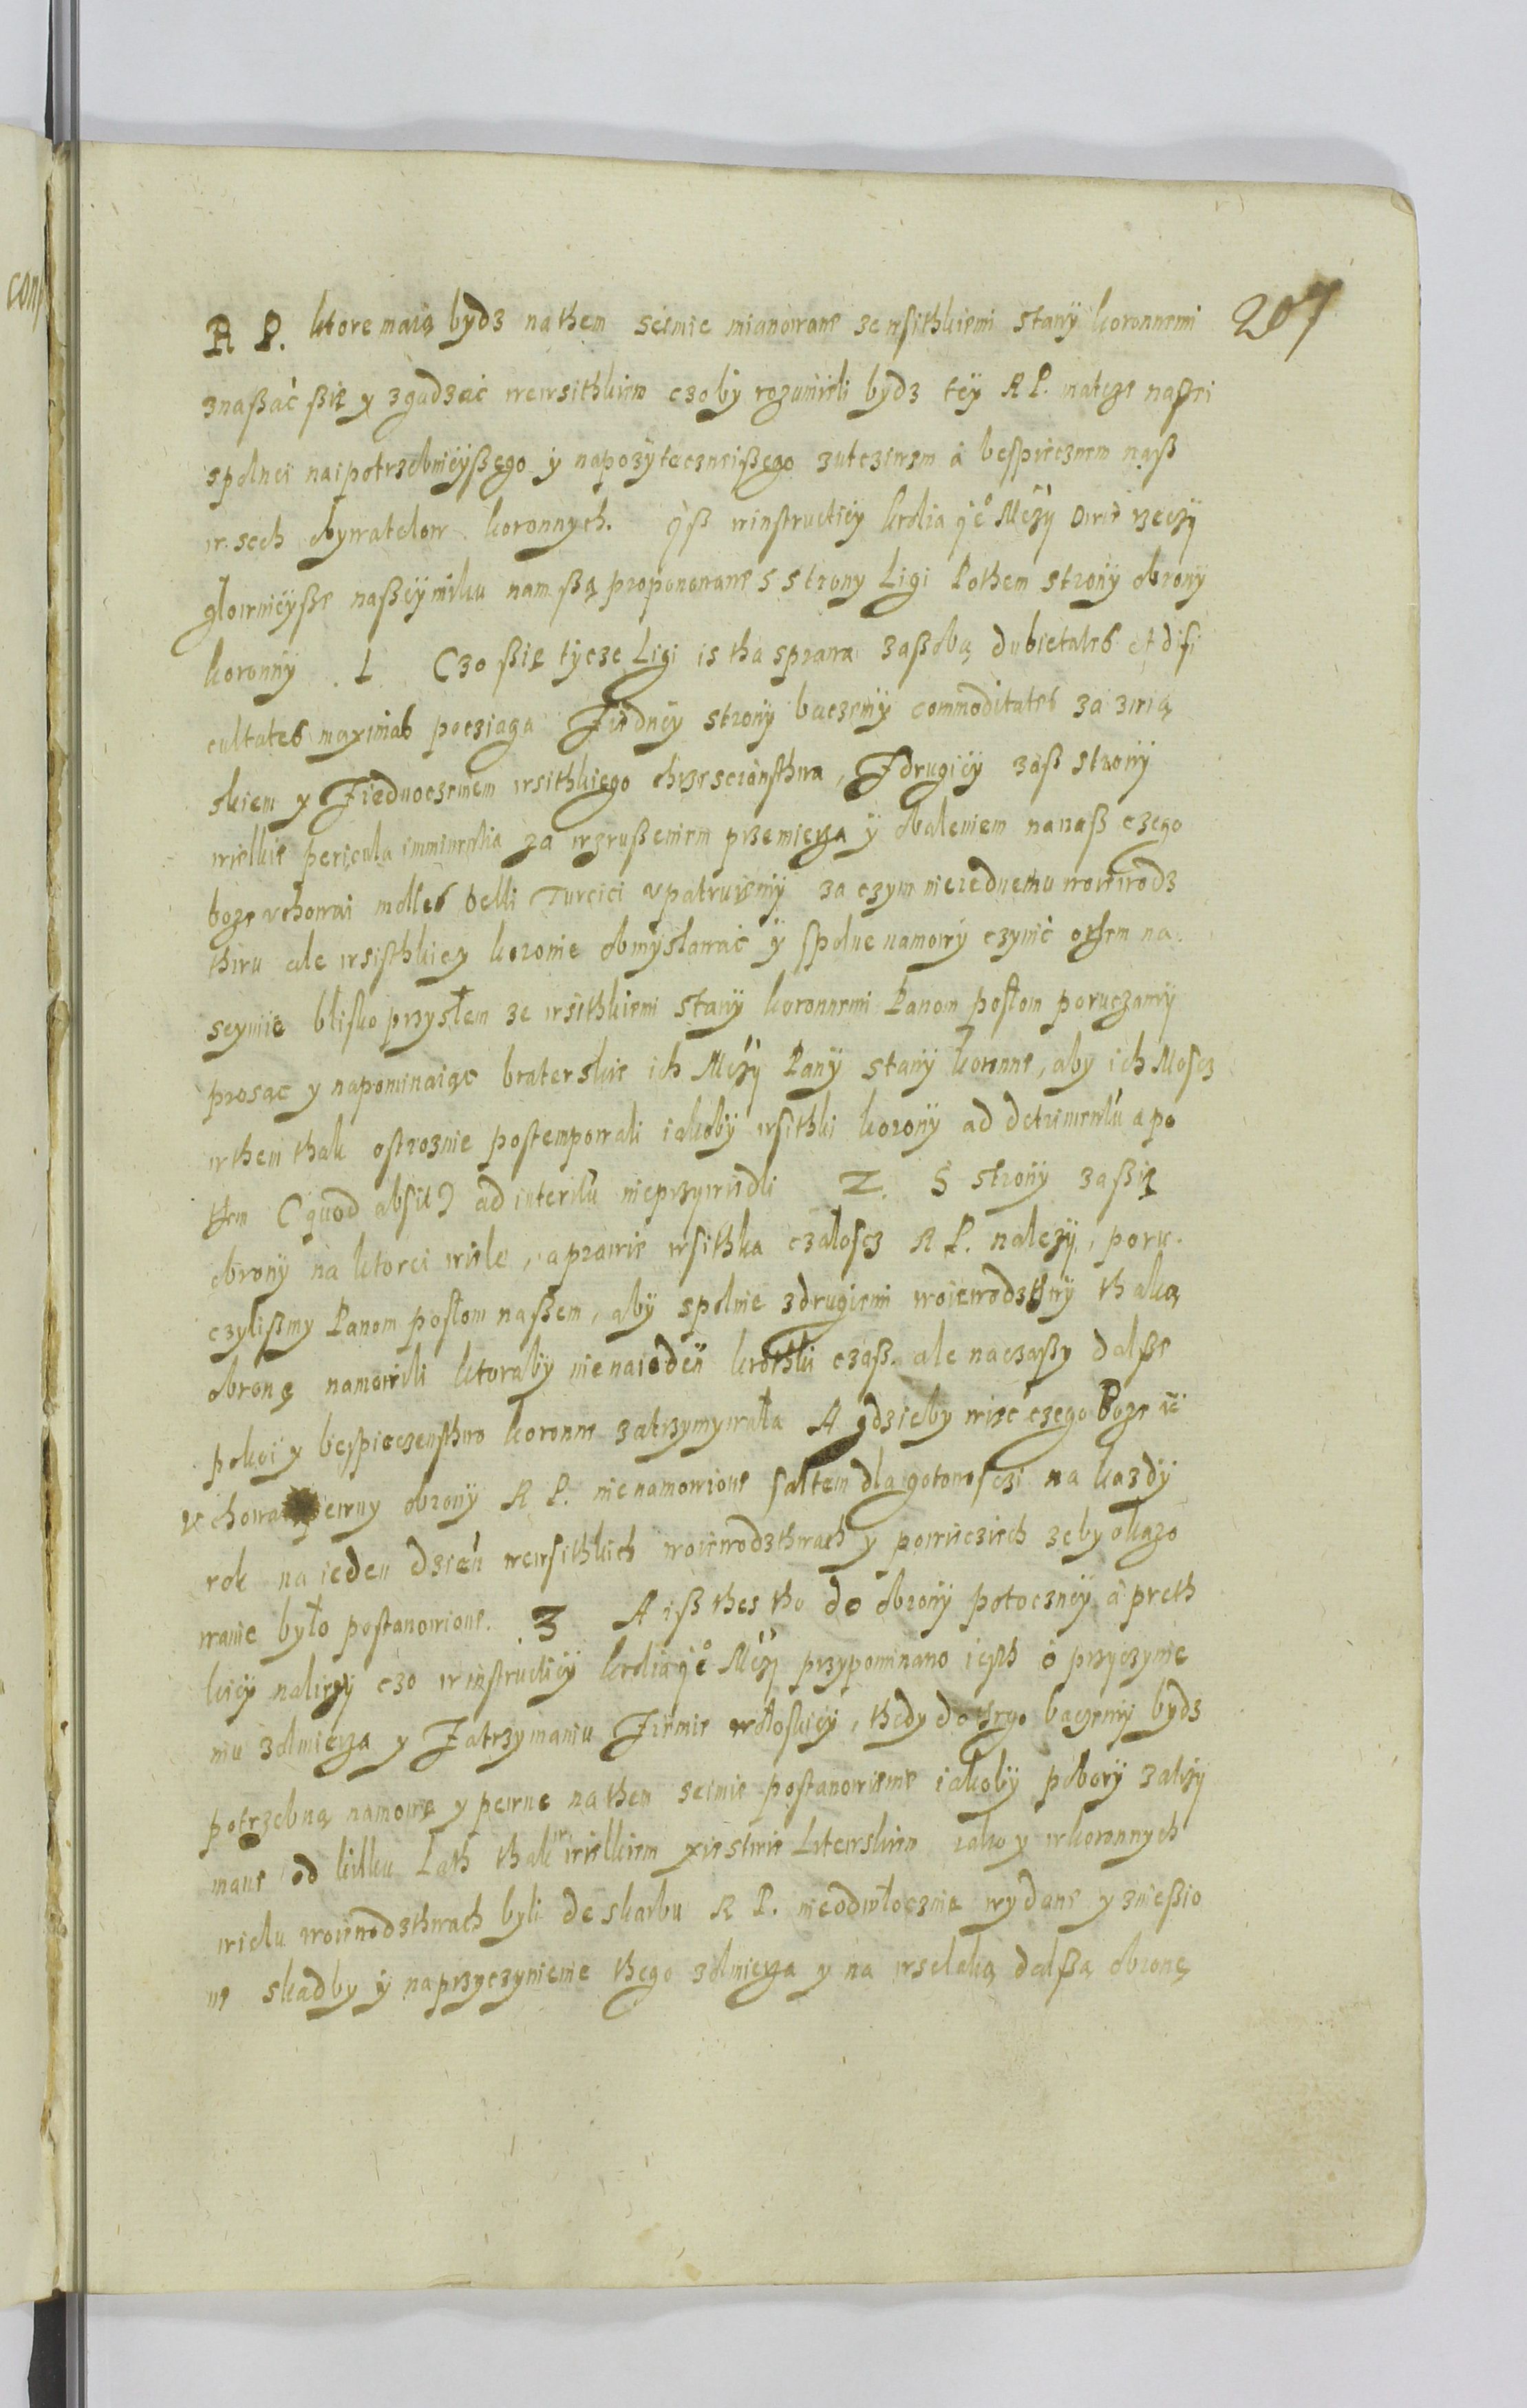 207
R P. ktore maią bydz na them seimie mianowane ze wsithkiemi stany koronnemi
znaßać ßię y zgadzać we wsithkiem czoby rozumieli bydz tey R P. matcze naßei
spolnei naipotrzebnieyßego y napozytecznieißego z utczciwem a bespiecznem naß
wsech obywatelow koronnych. Iß w instructiey krolia je° Mczi dwie rzeczy
głownieyße na ßeymiku nam ßą proponowane s strony Ligi Pothem strony obrony
koronny . 1 Czo ßię tycze Ligi is tha sprawa za ßobą dubietates et difi
cultates maximas pocziąga Z iedney strony baczemy commoditates za zwią
skiem y Ziednoczeniem wsithkiego chrzesczansthwa, Z drugiey zaß strony
wielkie pericula imminentia za wzrußeniem przemierza y obaleniem na naß czego
boze uchowai molles belli Turcici upatruiemy za czym nie iednemu woiewodz
thwu ale wsisthkiey koronie obmyslawać y spolne namowy czynić o them na
seymie blisko przysłem ze wsithkiemi stany koronnemi Panom posłom poruczamy
prosąc y napominaiąc braterskie ich Mczi Pany stany koronne, aby ich Moscz
w them thak ostroznie postempowali iakoby wsithki korony ad detrimentu a po
them (quod absit) ad interitu nieprzywiedli 2. S strony zaßię
obrony na ktorei wiele, a prawie wsithka czałoscz R P. nalezy, poru
czylißmy Panom posłom naßem, aby spolnie z drugiemi woiewodzthwy thaką
obronę namowili ktoraby nie na ieden krothki czaß, ale na czaßy dalße
pokoi y bespieczensthwo koronne zatrzymywała A gdzieby więc czego Boze
uchowai pewny obrony R P. nie namowiono saltem dla gotowosczi na kazdy
rok na ieden dzień we wsithkich woiewodzthwach y powieciech zeby okazo
wanie było postanowione. 3 A iß thes tho do obrony potoczney a preth
kiey nalezy czo w instructiey krolia je° Mczi przypominano iesth o przyczynie
niu zolnierza y Zatrzymaniu Ziemie wołoskiey, thedy do thego baczemy bydz
potrzebną namowę y pewne na them seimie postanowienie iakoby pobory zatrzy
mane od kilku Lath thak w wielkiem xięstwie Litewskiem iako y w koronnych
wielu woiewodzthwach byli do skarbu R P. nieodwłocznie wydane y znießio
ne skadby y na przyczynienie thego zolnierza y na wselaką dalßą obronę